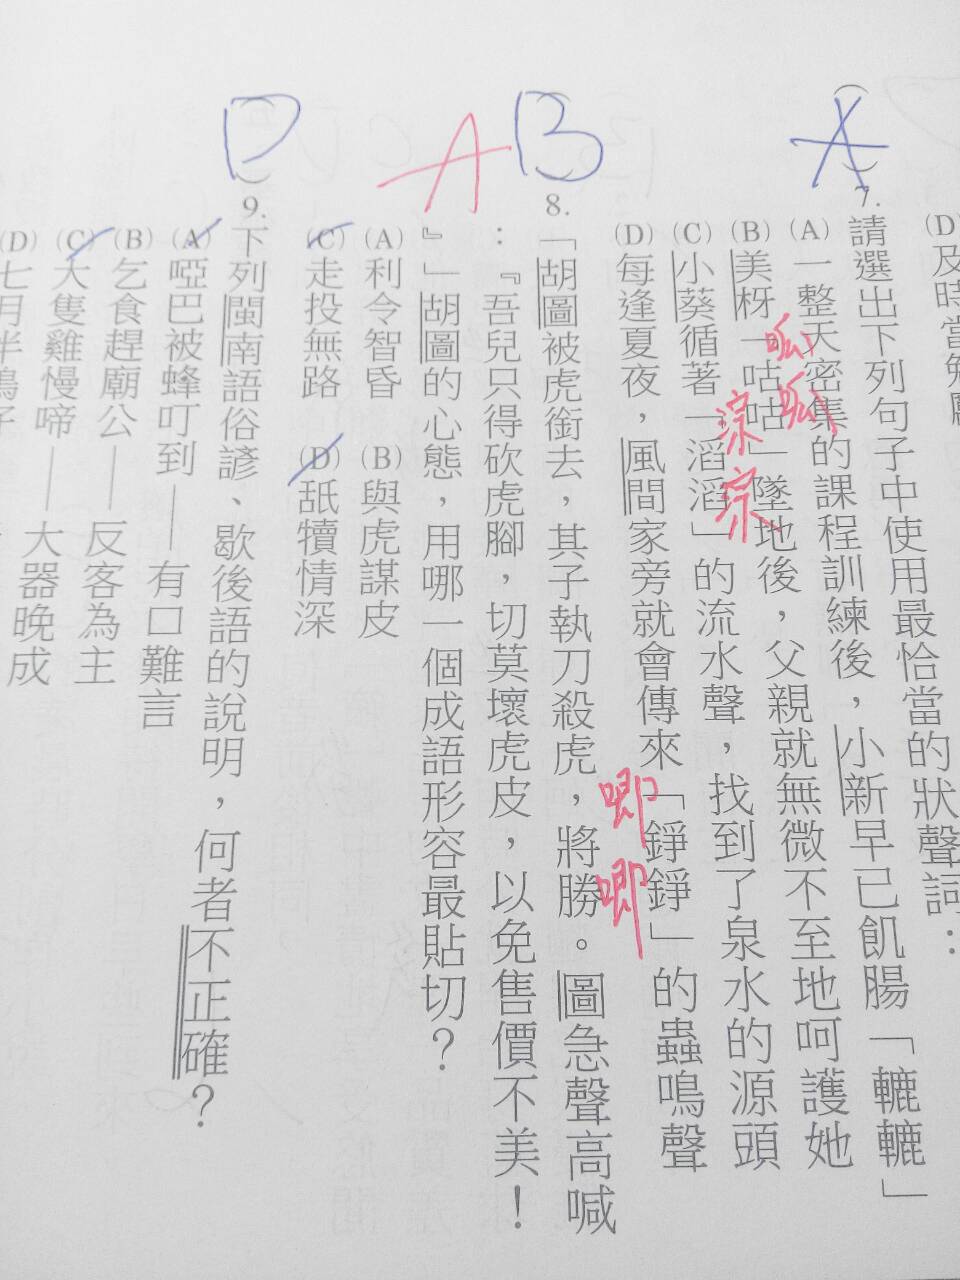 (D)及時當勉勵
A
7.請選出下列句子中使用最恰當的狀聲詞：
(A)一整天密集的課程訓練後，小新早已飢腸「轆轆」
(B)美枒「咕咕」墜地後，父親就無微不至地呵護她
呱呱
(C)小葵循著「滔滔」的流水聲，找到了泉水的源頭
淙淙
(D)每逢夏夜，風間家旁就會傳來「錚錚」的蟲鳴聲
唧唧
B
A
8.「胡圖被虎銜去，其子執刀殺虎，將勝。圖急聲高喊
：『吾兒只得砍虎腳，切莫壞虎皮，以免售價不美！
』」胡圖的心態，用哪一個成語形容最貼切？
(A)利令智昏 (B)與虎謀皮
(C)走投無路 (D)舐犢情深
D
9.下列閩南語俗諺、歇後語的說明，何者不正確？
(A)啞巴被蜂叮到──有口難言
(B)乞食趕廟公──反客為主
(C)大隻雞慢啼──大器晚成
(D)七月半鴨子